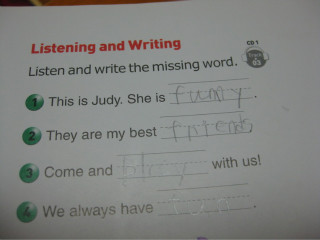 Listening and Writing
CD 1
Track 63
Listen and write the missing word.
1 This is Judy. She is funny.
2 They are my best
3 Come and play with us!
4 We always have fun.